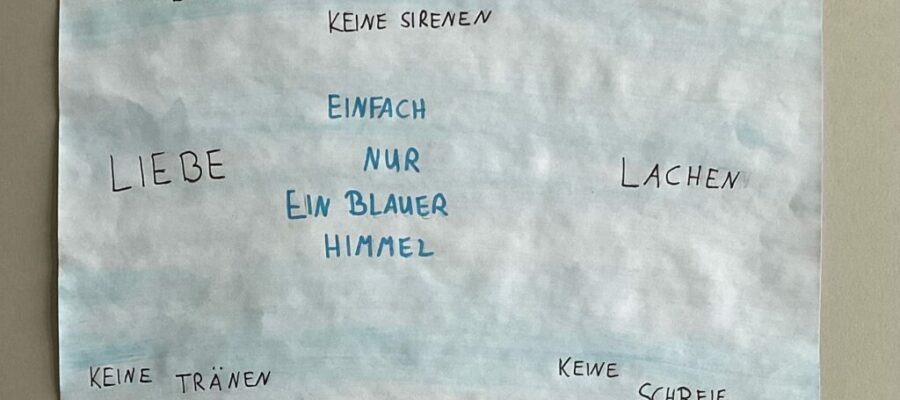 KEINE SIRENEN
EINFACH
NUR
LIEBE
LACHEN
EIN BLAUER
HIMMEL
KEINE TRÄNEN
KEINE
SCHREIE